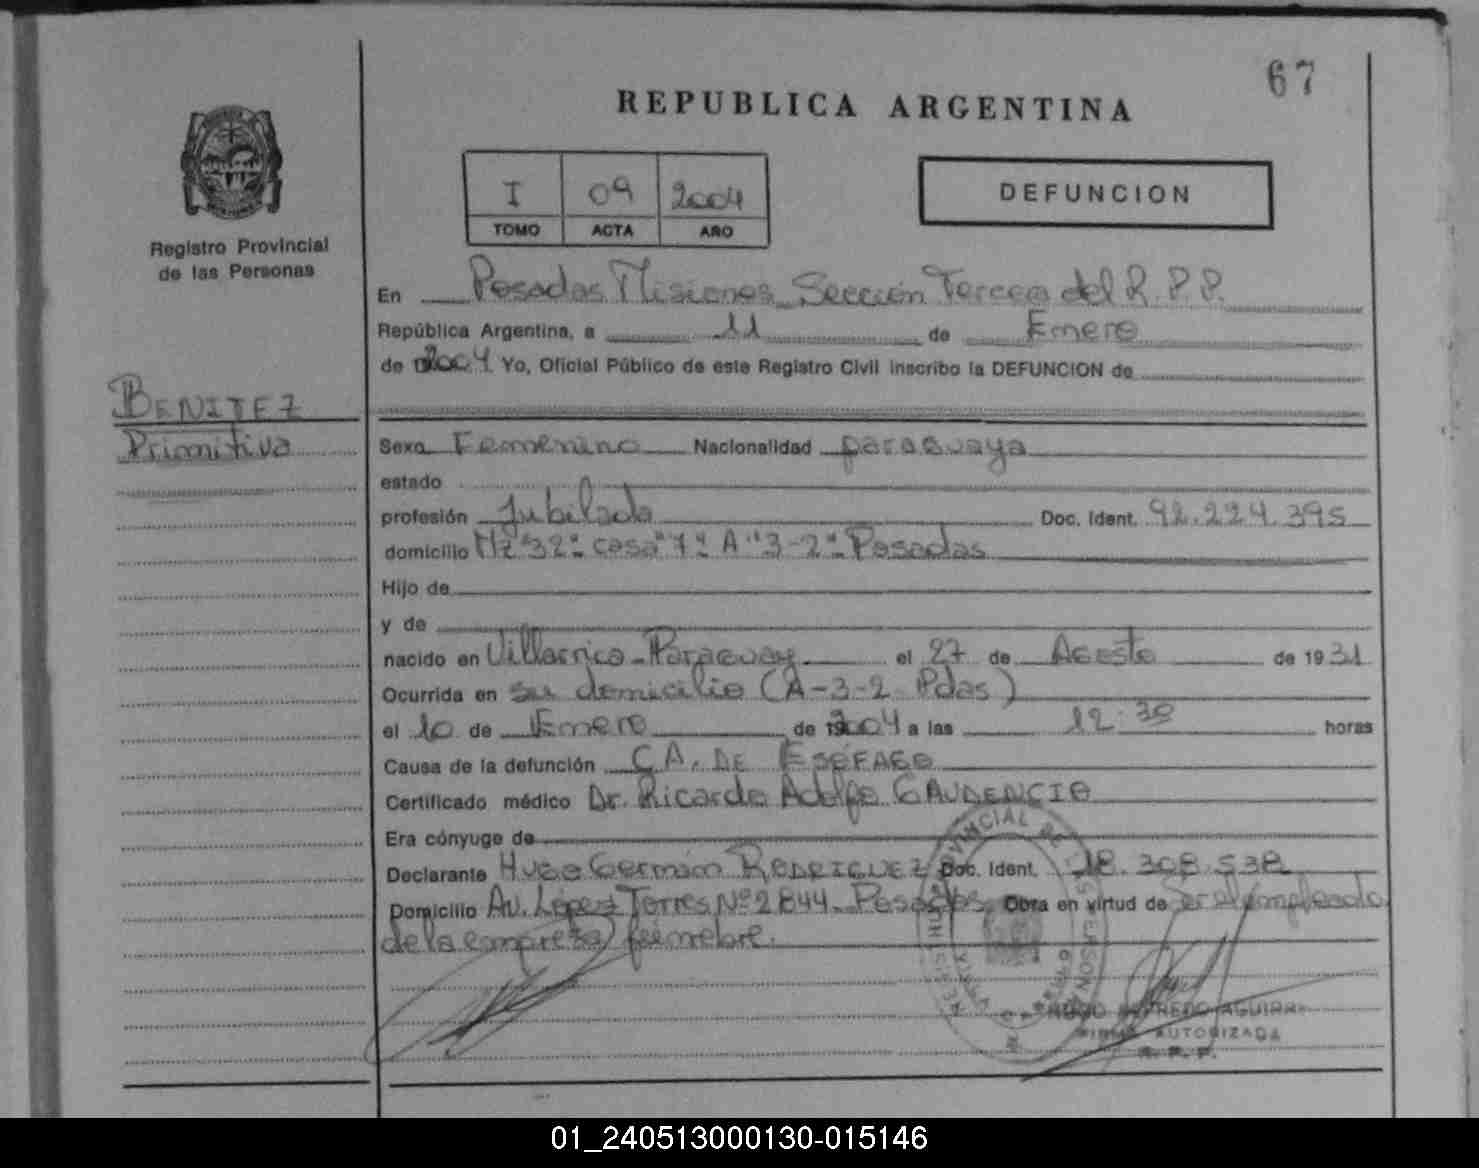 67
REPUBLICA ARGENTINA
I 09 2004
TOMO ACTA AÑO
DEFUNCION
Registro Provincial
de las Personas
En Posadas Misiones Sección Tercera del R.P.P.
República Argentina, a 11 de Enero
de 2004 Yo, Oficial Público de este Registro Civil inscribo la DEFUNCION de
BENITEZ
Primitiva
Sexo Femenino Nacionalidad paraguaya
estado
profesión Jubilada Doc. Ident. 92.224.395
domicilio Mz "32" casa "7" A "3-2" Posadas
Hijo de
y de
nacido en Villarrica - Paraguay el 27 de Agosto de 1931
Ocurrida en su domicilio (A-3-2 Pdas)
el 10 de Enero de 2004 a las 12:30 horas
Causa de la defunción CA. DE ESÓFAGO
Certificado médico Dr. Ricardo Adolfo GAUDENCIO
Era cónyuge de
Declarante Hugo Germán RODRIGUEZ Doc. Ident. 18.308.538
Domicilio Av. López Torres Nº 2844 - Posadas Obra en virtud de ser el empleado
de la empresa fúnebre.
ALFREDO AGUIRRE
FIRMA AUTORIZADA
R. P. P.
01_240513000130-015146